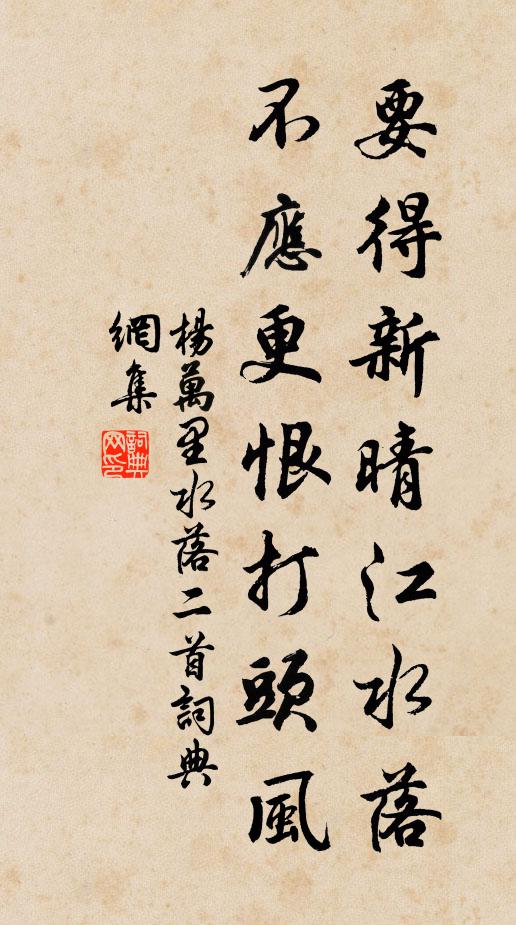 要得新晴江水落
不應更恨打頭風
楊萬里水落二首詞典
網集
詞典
网印